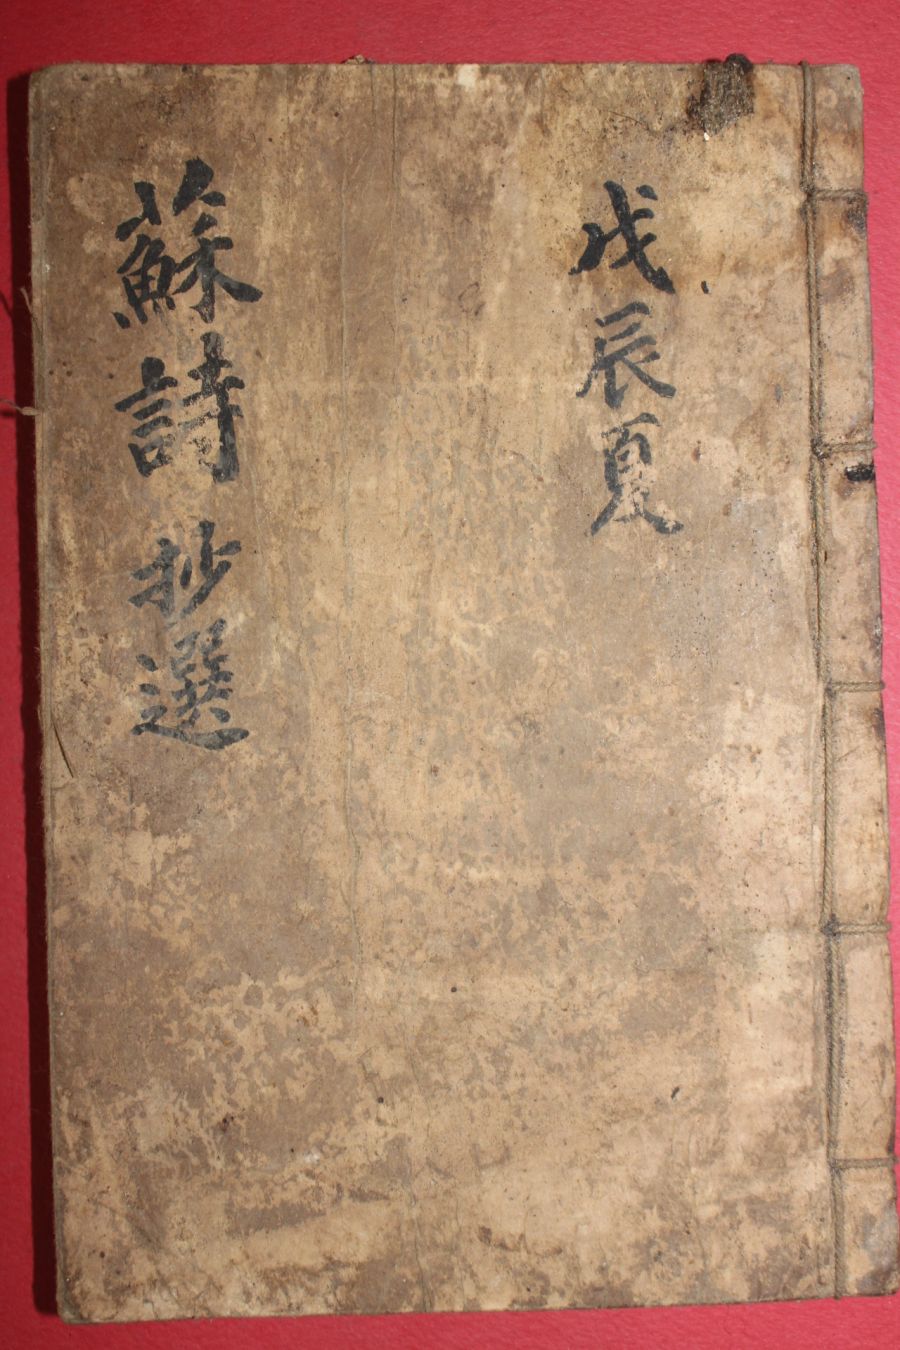 戊辰夏
蘇詩抄選